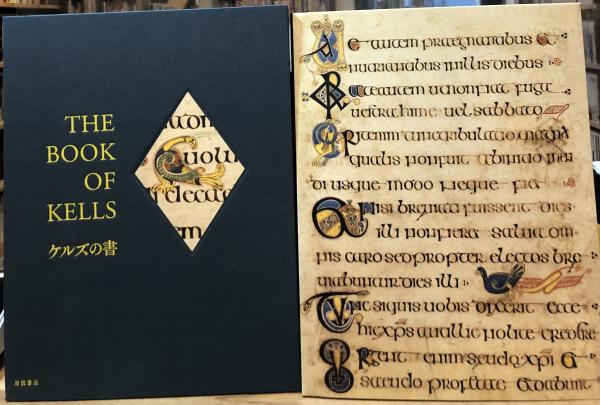 THE
BOOK
OF
KELLS
ケルズの書
岩波書店
autem praegnantibus et
nutrientibus in illis diebus
autem ut non fiat fuga
uestra hieme uel sabbato
enim tunc tribulatio magna
qualis non fuit ab initio mun
di usque modo neque fiet
nisi breuiati fuissent dies
illi non fieret salua om
nis caro sed propter electos bre
uiabuntur dies illi
Tunc si quis uobis dixerit ecce
hic xps aut illic nolite credere
enim seudo xpi et
seudo profetae et dabunt